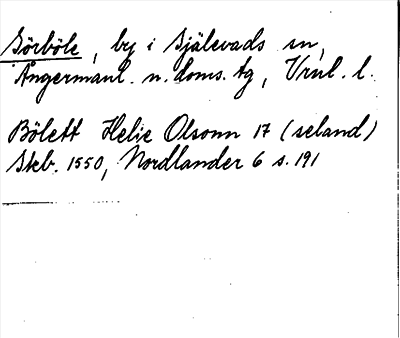 Sörböle, by i Själevads sn,
Ångermanl. n. doms. tg, Vrnl. l.
Bölett Helie Olsonn 17 (seland)
Skb. 1550, Nordlander 6 s. 191